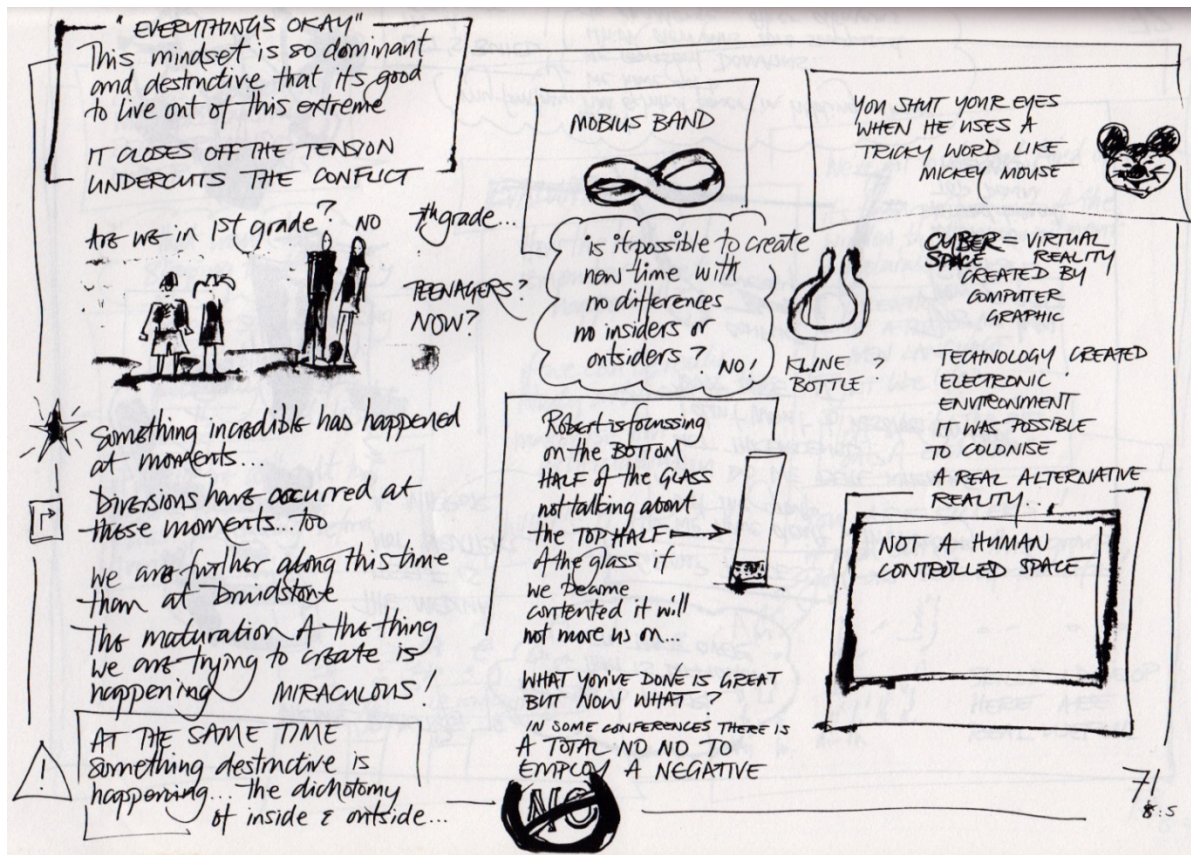 "EVERYTHING'S OKAY"
This mindset is so dominant
and destructive that it's good
to live out of this extreme
IT CLOSES OFF THE TENSION
UNDERCUTS THE CONFLICT
Are we in 1st grade? NO
7th grade...
TEENAGERS?
NOW?
Something incredible has happened
at moments...
Divisions have occurred at
those moments... too
we are further along this time
than at Bruidstone
The maturation of the thing
we are trying to create is
happening MIRACULOUS!
!
AT THE SAME TIME
Something destructive is
happening... the dichotomy
of inside & outside...
MOBIUS BAND
Is it possible to create
now time with
no differences
no insiders or
outsiders?
NO!
KLINE ?
BOTTLE
Robert is focussing
on the BOTTOM
HALF of the GLASS
not talking about
the TOP HALF
of the glass if
we became
contented it will
not move us on...
WHAT YOU'VE DONE IS GREAT
BUT NOW WHAT?
IN SOME CONFERENCES THERE IS
A TOTAL NO NO TO
EMPLOY A NEGATIVE
NO
YOU SHUT YOUR EYES
WHEN HE USES A
TRICKY WORD LIKE
MICKEY MOUSE
CYBER = VIRTUAL
SPACE REALITY
CREATED BY
COMPUTER
GRAPHIC
TECHNOLOGY CREATED
ELECTRONIC
ENVIRONMENT
IT WAS POSSIBLE
TO COLONISE
A REAL ALTERNATIVE
REALITY...
NOT A HUMAN
CONTROLLED SPACE
71
8:5